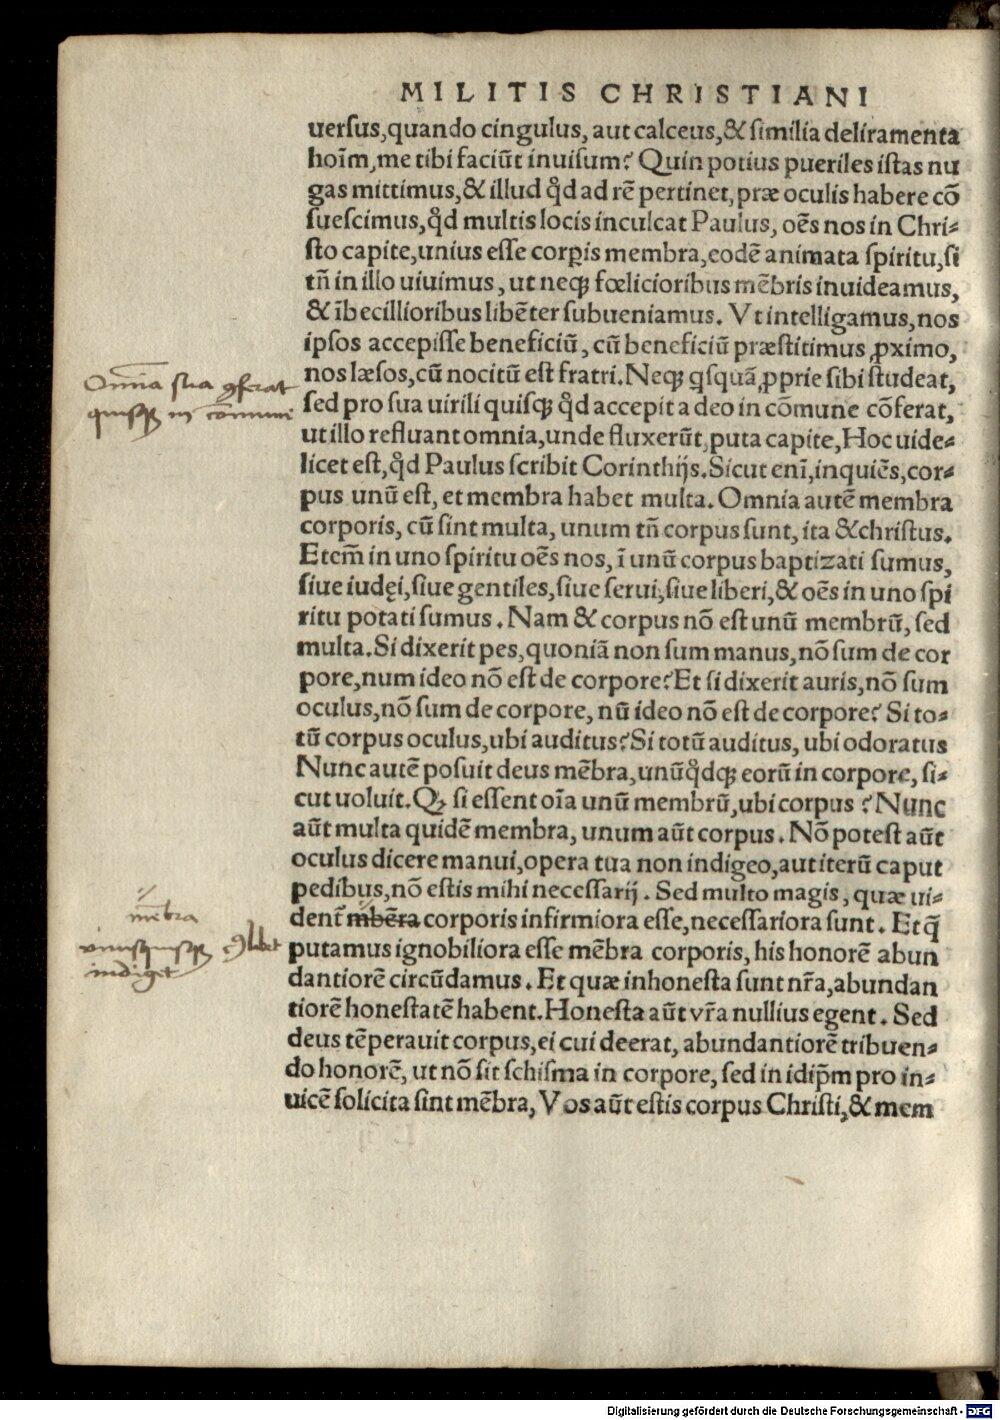 MILITIS CHRISTIANI
uersus,quando cingulus, aut calceus,& similia deliramenta
hoīm,me tibi faciūt inuisum? Quin potius pueriles istas nu
gas mittimus,& illud qd̄ ad rē pertinet, præ oculis habere cō
suescimus,qd̄ multis locis inculcat Paulus, oēs nos in Chri⸗
sto capite,unius esse corꝑis membra,eodē animata spiritu,si
tñ in illo uiuimus, ut neqꝫ fœlicioribus mēbris inuideamus,
& ībecillioribus libēter subueniamus. Vt intelligamus,nos
ipsos accepisse beneficiū, cū beneficiū præstitimus ꝓximo,
nos læsos,cū nocitū est fratri.Neqꝫ qsquā ꝓprie sibi studeat,
sed pro sua uirili quisqꝫ qd̄ accepit a deo in cōmune cōferat,
ut illo refluant omnia,unde fluxerūt,puta capite,Hoc uide⸗
licet est,qd̄ Paulus scribit Corinthijs.Sicut enī,inquiēs,cor⸗
pus unū est, et membra habet multa. Omnia autē membra
corporis, cū sint multa, unum tñ corpus sunt, ita & christus.
Etem̄ in uno spiritu oēs nos, ī unū corpus baptizati sumus,
siue iudęi,siue gentiles,siue serui,siue liberi,& oēs in uno spi
ritu potati sumus. Nam & corpus nō est unū membrū, sed
multa.Si dixerit pes,quoniā non sum manus,nō sum de cor
pore,num ideo nō est de corpore?Et si dixerit auris,nō sum
oculus,nō sum de corpore, nū ideo nō est de corpore? Si to⸗
tū corpus oculus,ubi auditus?Si totū auditus, ubi odoratus
Nunc autē posuit deus mēbra,unūqd̄qꝫ eorū in corpore, si⸗
cut uoluit.Qꝫ si essent oīa unū membrū,ubi corpus ? Nunc
aūt multa quidē membra, unum aūt corpus. Nō potest aūt
oculus dicere manui,opera tua non indigeo,aut iterū caput
pedibus,nō estis mihi necessarij. Sed multo magis, quæ ui⸗
dent̄ mbēra corporis infirmiora esse,necessariora sunt. Et q̄
putamus ignobiliora esse mēbra corporis, his honorē abun
dantiorē circūdamus. Et quæ inhonesta sunt nr̄a,abundan
tiorē honestatē habent.Honesta aūt vr̄a nullius egent. Sed
deus tēperauit corpus,ei cui deerat, abundantiorē tribuen⸗
do honorē, ut nō sit schisma in corpore, sed in idip̄m pro in⸗
uicē solicita sint mēbra, Vos aūt estis corpus Christi,& mem
Omnia sua ꝯferat
quisqꝫ in cōmune
mēbra
unusquisqꝫ
indiget
Digitalisierung gefördert durch die Deutsche Forschungsgemeinschaft - DFG